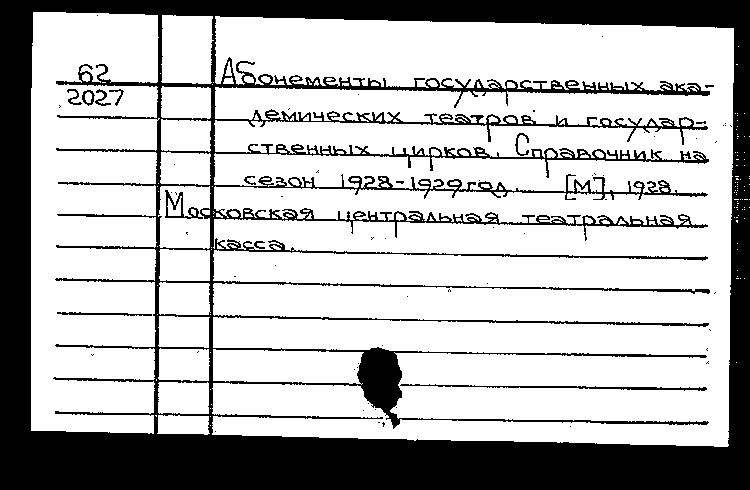 62
2027
Абонементы государственных ака-
демических театров и государ-
ственных цирков. Справочник на
сезон 1928-1929 год. [М], 1928.
Московская центральная театральная
касса.